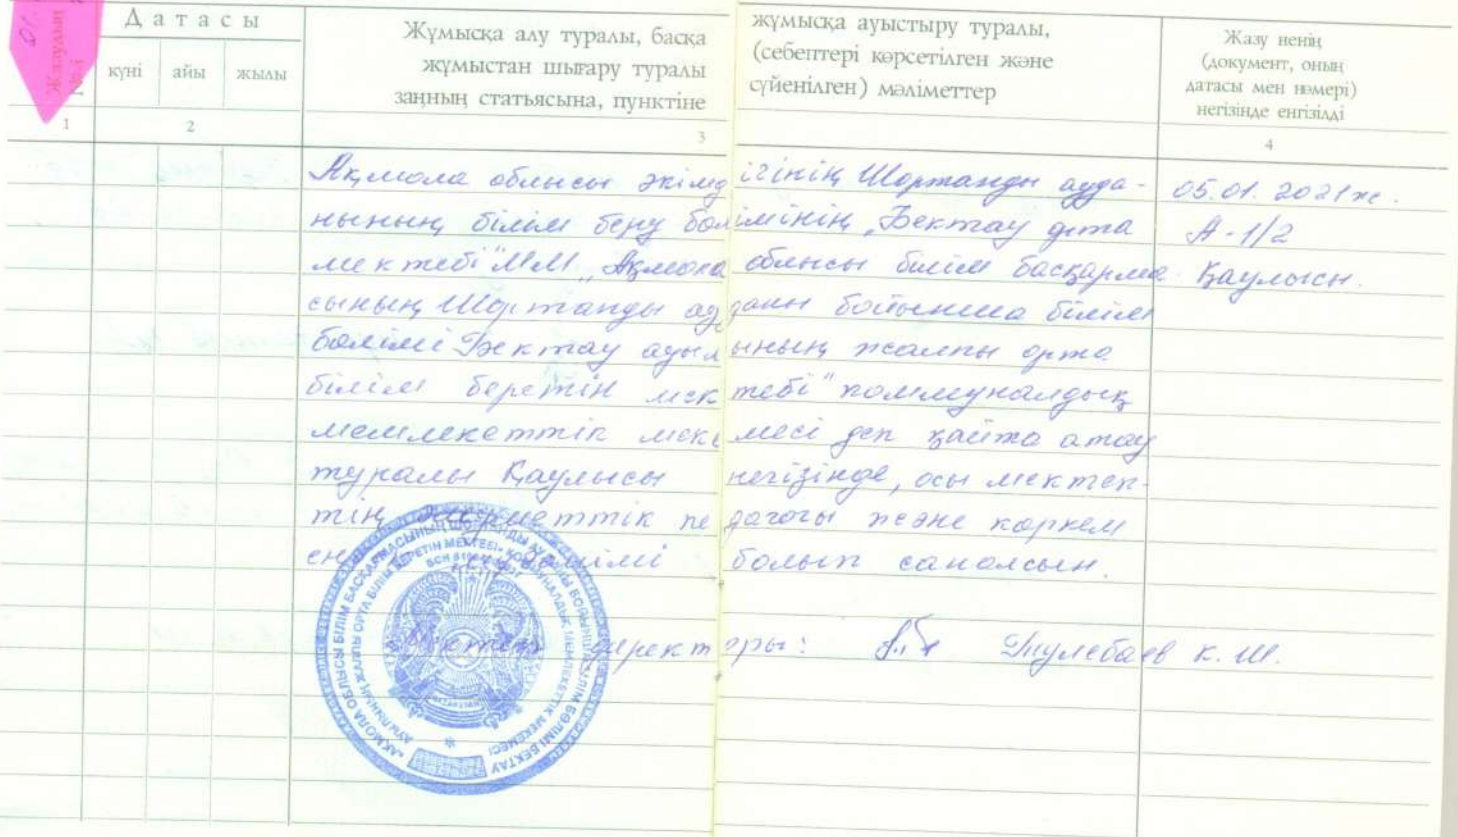 Жазудың №-і
Датасы
күні айы жылы
Жұмысқа алу туралы, басқа жұмысқа ауыстыру туралы,
жұмыстан шығару туралы (себептері көрсетілген және
заңның статьясына, пунктіне сүйенілген) мәліметтер
Жазу ненің
(документ, оның
датасы мен нөмері)
негізінде енгізілді
1 2 3 4
Ақмола облысы әкімдігінің Шортанды ауда- 05.01.2021ж.
нының білім беру бөлімінің „Бектау орта А-1/2
мектебі" ММ „Ақмола облысы білім басқарма- Қаулысы.
сының Шортанды ауданы бойынша білім
бөлімі Бектау ауылының жалпы орта
білім беретін мектебі" коммуналдық
мемлекеттік мекемесі деп қайта атау
туралы Қаулысы негізінде, осы мектеп-
тің педагогы және көркем
болып саналсын.
Мектеп директоры: Тулебаев К.Ш.
«АҚМОЛА ОБЛЫСЫ БІЛІМ БАСҚАРМАСЫНЫҢ ШОРТАНДЫ АУДАНЫ БОЙЫНША БІЛІМ БӨЛІМІ БЕКТАУ
АУЫЛЫНЫҢ ЖАЛПЫ ОРТА БІЛІМ БЕРЕТІН МЕКТЕБІ» КОММУНАЛДЫҚ МЕМЛЕКЕТТІК МЕКЕМЕСІ
БСН